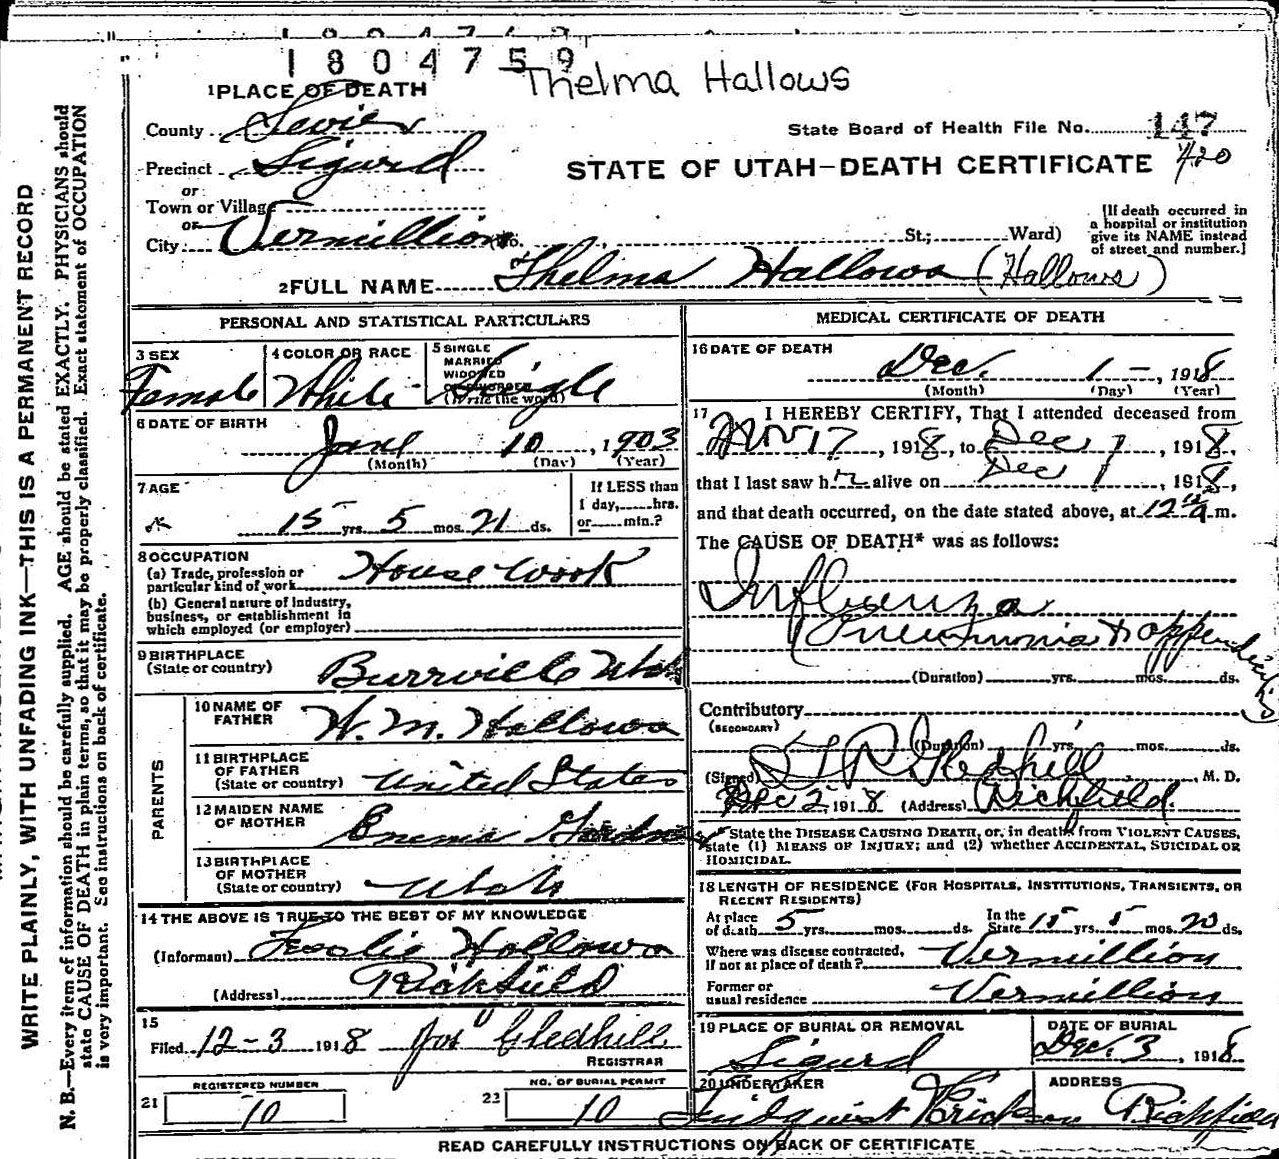 1804759
Thelma Hallows
1 PLACE OF DEATH
County Sevier
State Board of Health File No. 147
420
Precinct Sigurd
STATE OF UTAH—DEATH CERTIFICATE
or
Town or Village
or
City Vermillion No. St.; Ward)
[If death occurred in
a hospital or institution
give its NAME instead
of street and number.]
2 FULL NAME Thelma Hallows (Hallows)
PERSONAL AND STATISTICAL PARTICULARS
3 SEX
Female
4 COLOR OR RACE
White
5 SINGLE
MARRIED
WIDOWED
OR DIVORCED
(Write the word)
Single
6 DATE OF BIRTH
June 10, 1903
(Month) (Day) (Year)
7 AGE
15 yrs. 5 mos. 21 ds.
If LESS than
1 day, hrs.
or min.?
8 OCCUPATION
(a) Trade, profession or
particular kind of work House Work
(b) General nature of industry,
business, or establishment in
which employed (or employer)
9 BIRTHPLACE
(State or country) Burrville Utah
PARENTS
10 NAME OF
FATHER W. M. Hallows
11 BIRTHPLACE
OF FATHER
(State or country) United States
12 MAIDEN NAME
OF MOTHER
13 BIRTHPLACE
OF MOTHER
(State or country) Utah
14 THE ABOVE IS TRUE TO THE BEST OF MY KNOWLEDGE
(Informant) Leslie Hallows
(Address) Richfield
15
Filed 12-3 1918 Jos Gledhill
REGISTRAR
21 REGISTERED NUMBER
10
22 NO. OF BURIAL PERMIT
10
MEDICAL CERTIFICATE OF DEATH
16 DATE OF DEATH
Dec. 1 -, 1918
(Month) (Day) (Year)
17 I HEREBY CERTIFY, That I attended deceased from
Nov 17, 1918, to Dec 1, 1918,
that I last saw h alive on Dec 1, 1918,
and that death occurred, on the date stated above, at 12 m.
The CAUSE OF DEATH* was as follows:
Influenza
Pneumonia & appendicitis
(Duration) yrs. mos. ds.
Contributory
(SECONDARY)
(Duration) yrs. mos. ds.
(Signed) Gledhill, M. D.
Dec 2, 1918 (Address) Richfield.
* State the DISEASE CAUSING DEATH, or, in death from VIOLENT CAUSES,
state (1) MEANS OF INJURY; and (2) whether ACCIDENTAL, SUICIDAL OR
HOMICIDAL.
18 LENGTH OF RESIDENCE (FOR HOSPITALS, INSTITUTIONS, TRANSIENTS, OR
RECENT RESIDENTS)
At place
of death 5 yrs. mos. ds.
In the
State 15 yrs 5 mos. 20 ds.
Where was disease contracted,
if not at place of death? Vermillion
Former or
usual residence Vermillion
19 PLACE OF BURIAL OR REMOVAL
Sigurd
DATE OF BURIAL
Dec. 3, 1918
20 UNDERTAKER
ADDRESS
Richfield
READ CAREFULLY INSTRUCTIONS ON BACK OF CERTIFICATE
WRITE PLAINLY, WITH UNFADING INK—THIS IS A PERMANENT RECORD
N. B.—Every item of information should be carefully supplied. AGE should be stated EXACTLY. PHYSICIANS should
state CAUSE OF DEATH in plain terms, so that it may be properly classified. Exact statement of OCCUPATION
is very important. See instructions on back of certificate.